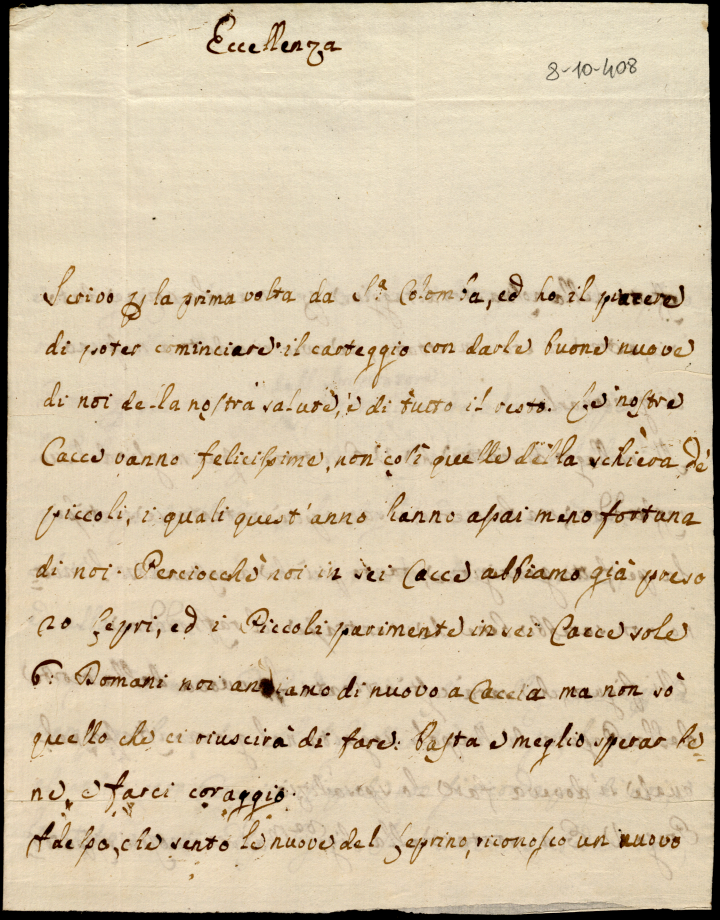 Eccellenza
8-10-408
Scrivo p la prima volta da S.ª Colomba, ed ho il piacere
di poter cominciare il carteggio con darle buone nuove
di noi della nostra salute, e di tutto il resto. Le nostre
Cacce vanno felicissime, non così quelle della schiera de'
piccoli, i quali quest'anno hanno assai meno fortuna
di noi. Perciocchè noi in sei Cacce abbiamo già preso
20 Lepri, ed i Piccoli parimente in sei Cacce sole
6: Domani noi andiamo di nuovo a Caccia ma non sò
quello che ci riuscirà di fare: basta è meglio sperar be=
ne, e farci coraggio.
Adesso, che sento le nuove del Leprino, riconosco un nuovo